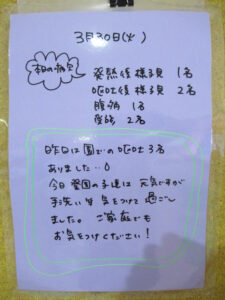 3月30日(火)
本日の病欠
発熱後様子見 1名
嘔吐後様子見 2名
腹痛 1名
2名
昨日は園での嘔吐3名
ありました…
今日登園の子達は元気ですが
手洗い等気をつけて過ごし
ました。ご家庭でも
お気をつけください!